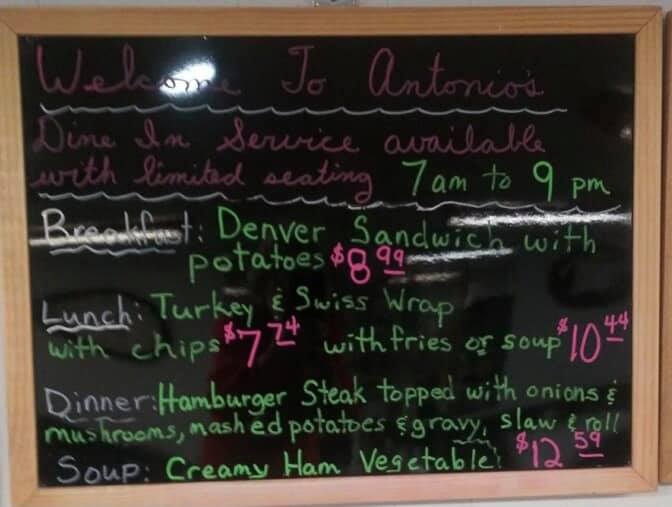 Welcome To Antonio's
Dine In Service available
with limited seating 7am to 9 pm
Breakfast: Denver Sandwich with
potatoes $8 99
Lunch: Turkey & Swiss Wrap
with chips $7 74 with fries or soup $10 44
Dinner: Hamburger Steak topped with onions &
mushrooms, mashed potatoes & gravy, slaw & roll
Soup: Creamy Ham Vegetable! $12 59